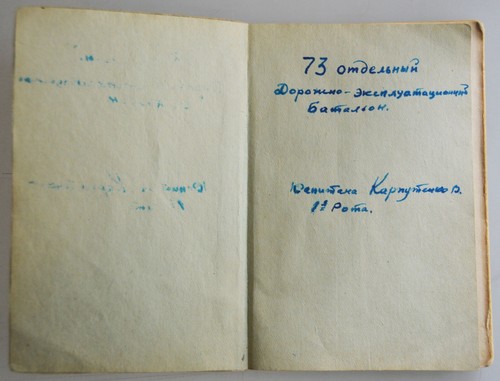 73 отдельный
Дорожно-эксплуатационный
Батальон.
Капитана Карпутенко В.
1я Рота.